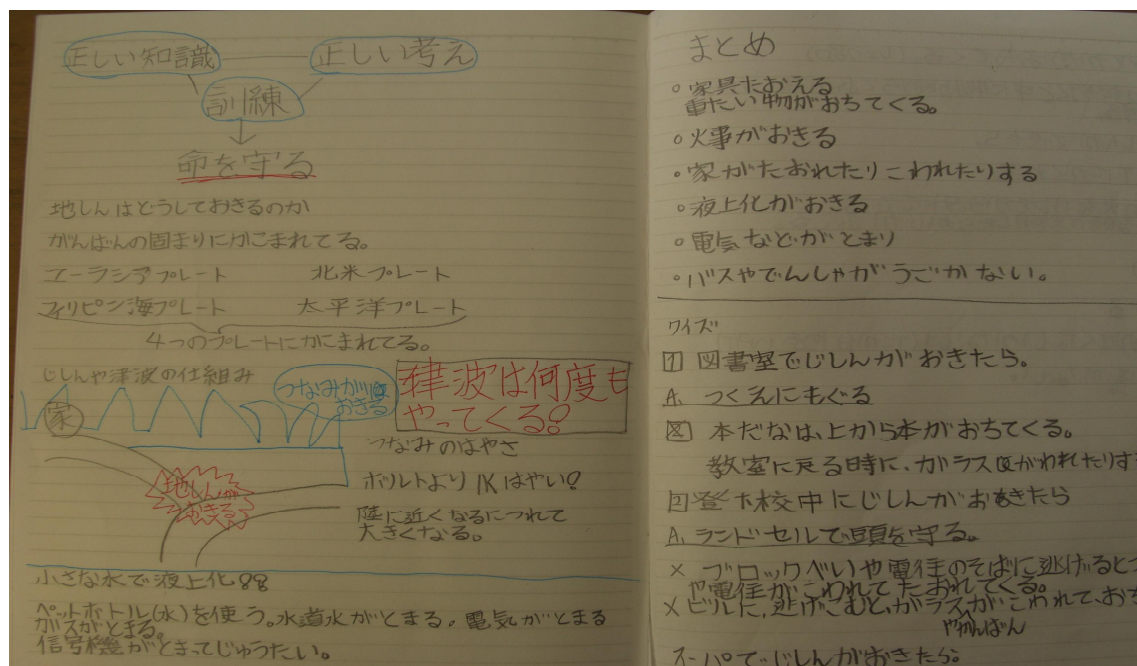 正しい知識 正しい考え
訓練
命を守る
地しんはどうしておきるのか
がんばんの固まりにかこまれてる。
ユーラシアプレート 北米プレート
フィリピン海プレート 太平洋プレート
4つのプレートにかこまれてる。
じしんや津波の仕組み
家
つなみが
おきる
津波は何度も
やってくる?
地しんが
おきる
つなみのはやさ
ボルトより はやい?
陸に近くなるにつれて
大きくなる。
小さな水で液上化
ペットボトル(水)を使う。水道水がとまる。電気がとまる
ガスがとまる。
信号機がとまってじゅうたい。
まとめ
○家具たおえる
重たい物がおちてくる。
○火事がおきる
○家がたおれたりこわれたりする
○液上化がおきる
○電気などがとまり
○バスやでんしゃがうごかない。
クイズ
1 図書室でじしんがおきたら。
A. つくえにもぐる
本だなは、上から本がおちてくる。
教室に戻る時に、ガラス がわれたりす
2 登下校中にじしんがおきたら
A. ランドセルで頭を守る。
× ブロックべいや電柱のそばに逃げると
や電柱がこわれてたおれてくる。
×ビルに、逃げこむと、ガラスがこわれて、おち
やかんばん
スーパーで、じしんがおきたら。